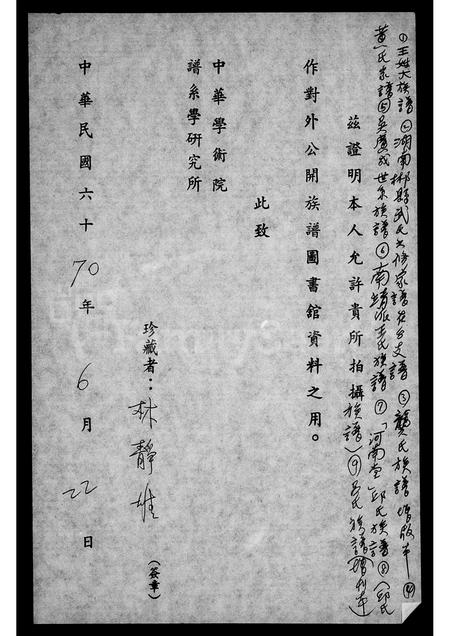 ①王姓大族譜②湖南郴縣武氏六修家譜在台支譜③龔氏族譜增啟本④
黃氏家譜⑤吳慶成世系族譜⑥南靖派王氏族譜⑦「河南堂」邱氏族譜⑧(邱氏
族譜)⑨呂氏族譜(增刊本)
茲證明本人允許貴所拍攝
作對外公開族譜圖書館資料之用。
此致
中華學術院
譜系學研究所
珍藏者：林靜雄
(簽章)
中華民國六十70年6月22日